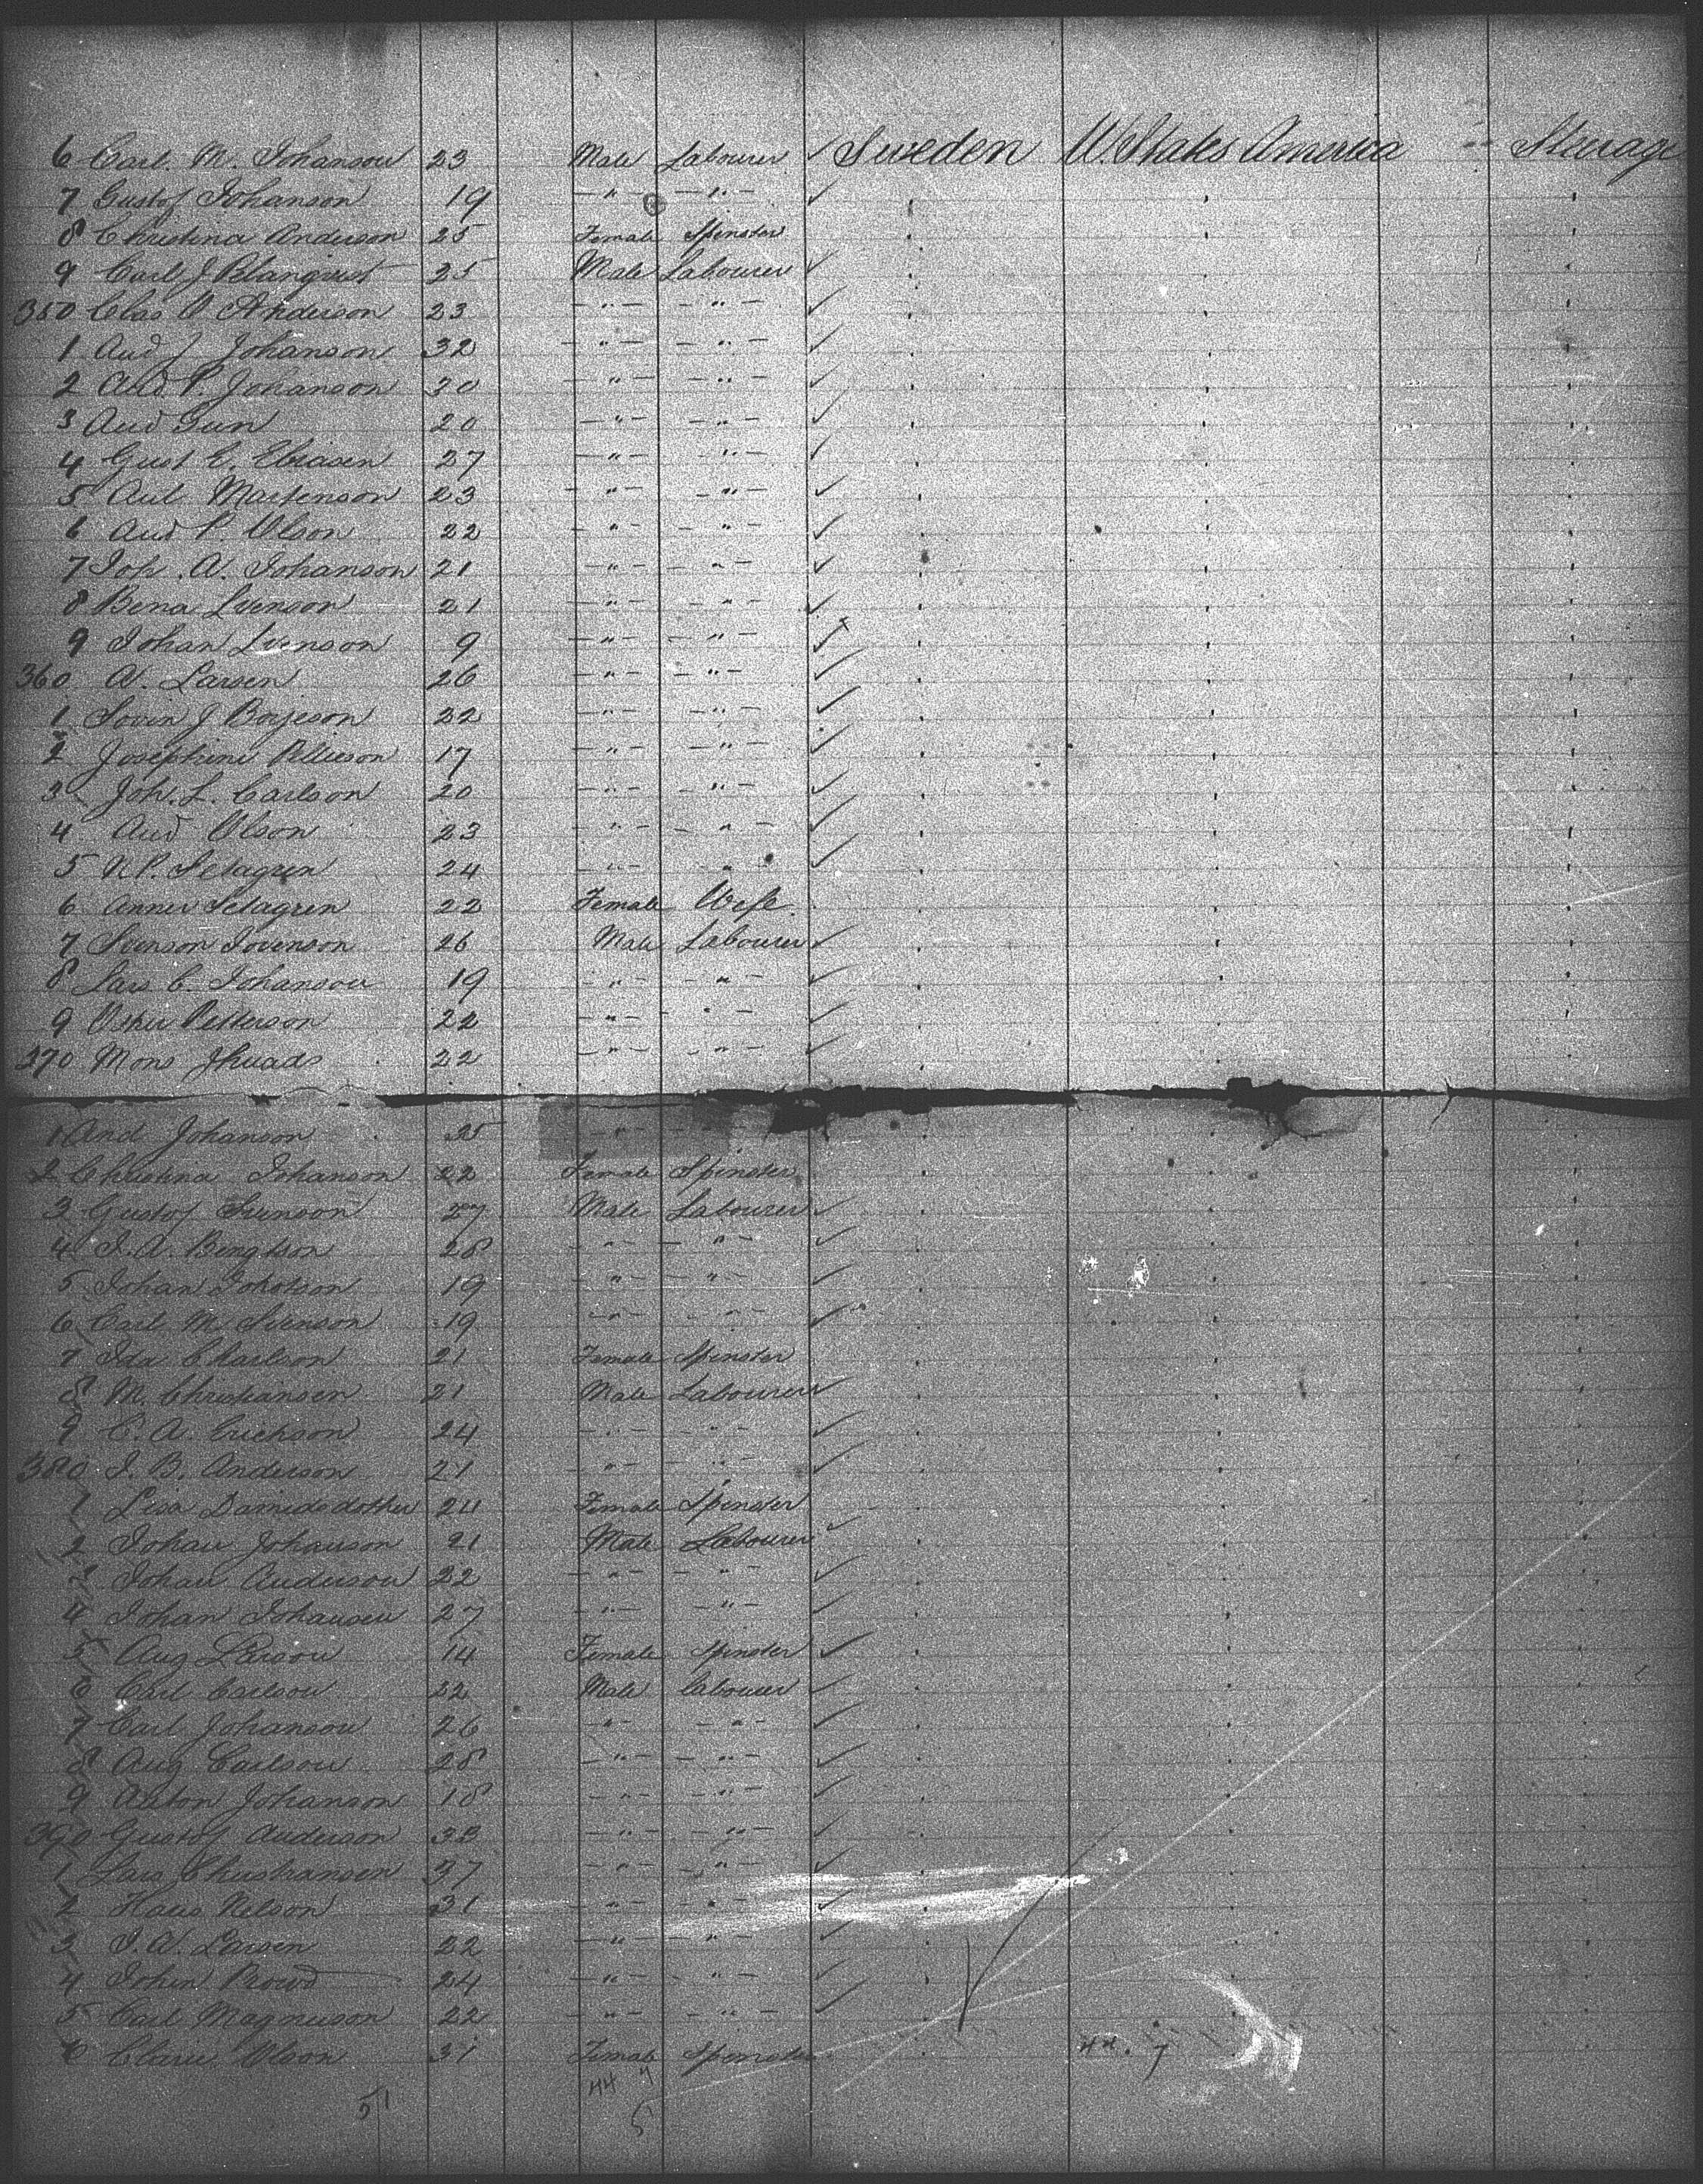 6 Carl. M. Johanson 23 Male Labourer ✓ Sweden U. States America Steerage
7 Gustof Johanson 19 —"— —"— ✓ " " "
8 Christina Anderson 25 Female Spinster " " "
9 Carl J 25 Male Labourer ✓ " " "
350 Clas Anderson 23 —"— —"— ✓ " " "
1 And J Johanson 32 —"— —"— ✓ " " "
2 And. P. Johanson 30 —"— —"— ✓ " " "
3 And 20 —"— —"— ✓ " " "
4 Gust E. 27 —"— —"— ✓ " " "
5 Martenson 23 —"— —"— ✓ " " "
6 And P. Olson 22 —"— —"— ✓ " " "
7 Joh. A. Johanson 21 —"— —"— ✓ " " "
8 Bena Svenson 21 —"— —"— ✓ " " "
9 Johan Svenson 9 —"— —"— ✓ " " "
360 A. Larsen 26 —"— —"— ✓ " " "
1 J Borjeson 22 —"— —"— ✓ " " "
2 Josephine 17 —"— —"— ✓ " " "
3 Joh. L. Carlson 20 —"— —"— ✓ " " "
4 And Olson 23 —"— —"— ✓ " " "
5 N P. Selagren 24 —"— —"— ✓ " " "
6 Selagren 22 Female Wife " " "
7 Svenson 26 Male Labourer ✓ " " "
8 Lars C. Johanson 19 —"— —"— ✓ " " "
9 Petterson 22 —"— —"— ✓ " " "
370 Mons 22 —"— —"— ✓ " "
1 And Johanson 25 —"— —"— " " "
2 Christina Johanson 22 Female Spinster " " "
3 Gustof Svenson 27 Male Labourer ✓ " " "
4 J. A. Bengtson 28 —"— —"— ✓ " " "
5 Johan 19 —"— —"— ✓ " " "
6 Carl M. Svenson 19 —"— —"— ✓ " " "
7 Ida Charlson 21 Female Spinster " " "
8 M. Christiansen 21 Male Labourer ✓ " " "
9 C. A. Erickson 24 —"— —"— ✓ " " "
380 J. B. Anderson 21 —"— —"— ✓ " " "
1 Lisa 24 Female Spinster " " "
2 Johan Johanson 21 Male Labourer ✓ " " "
3 Johan Anderson 22 —"— —"— ✓ " " "
4 Johan Johansen 27 —"— —"— ✓ " " "
5 Aug Larson 14 Female Spinster ✓ " " "
6 Carl Carlson 22 Male Labourer ✓ " " "
7 Carl Johanson 26 —"— —"— ✓ " " "
8 Aug Carlson 28 —"— —"— ✓ " " "
9 Anton Johanson 18 —"— —"— ✓ " " "
390 Gustof Anderson 33 —"— —"— ✓ " " "
1 Lars Christiansen 37 —"— —"— ✓ " " "
2 Hans Nelson 31 —"— —"— ✓ " " "
3 J. A. Larsen 22 —"— —"— ✓ " " "
4 John 24 —"— —"— ✓ " " "
5 Carl Magnuson 22 —"— —"— ✓ " " "
6 Olson 31 Female Spinster " 44. 7 " "
51 44 7
5